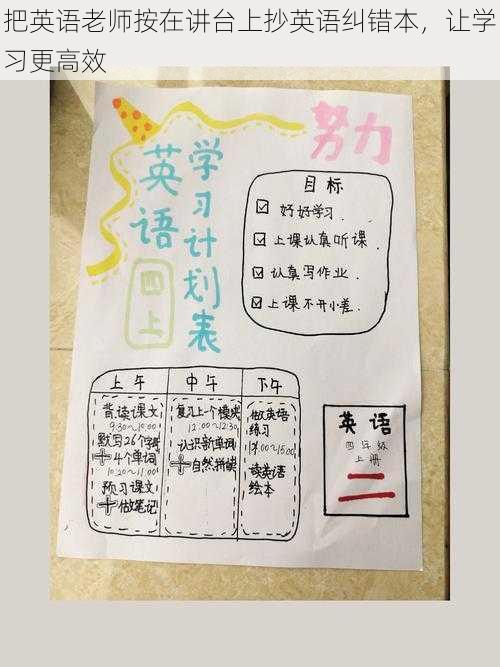 把英语老师按在讲台上抄英语纠错本，让学
习更高效
努力
英语
学习计划表
四上
目标
好好学习.
上课认真听课.
认真写作业.
上课不开小差.
上午
背读课文
9:30~10:00
默写26个字母
+4个单词
10:20~11:00
预习课文
+做笔记
中午
复习上一个模块
12:00~12:30
认识新单词
+自然拼读
下午
做英语
练习
读英语
绘本
英语
四年级
上册